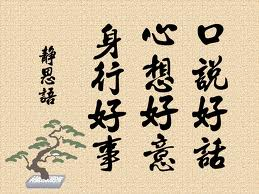 口說好話
心想好意
身行好事
靜思語